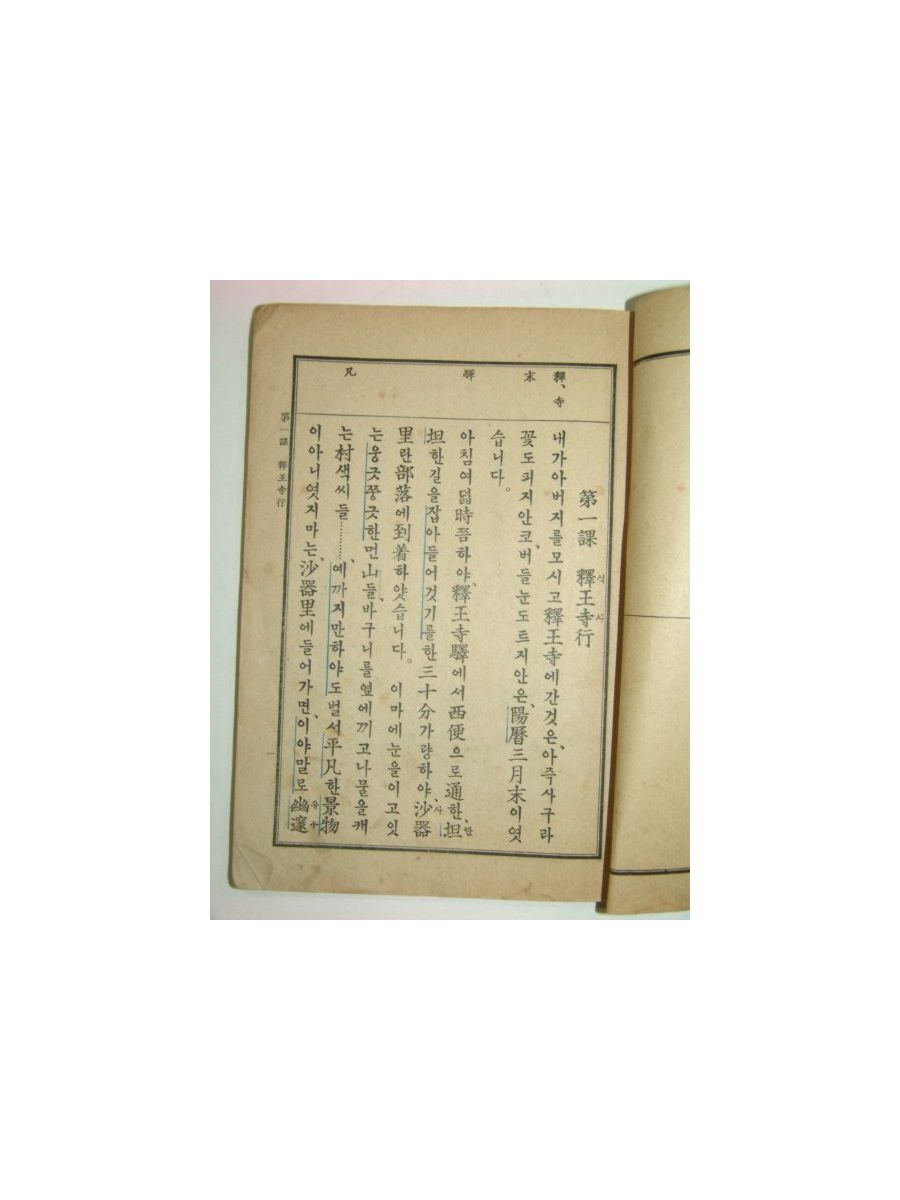 釋、寺
末
驛
凡
第一課 釋王寺行
석 사
내가아버지를모시고釋王寺에간것은、아즉사구라
꽃도피지안코、버들눈도트지안은、陽曆三月末이엿
습니다。
아침여덟時쯤하야、釋王寺驛에서西便으로通한、坦
탄
坦한길을잡아들어것기를한三十分가량하야、沙器
사
里란部落에到着하얏습니다。 이마에눈을이고잇
는웅긋쭝긋한먼山들、바구니를옆에끼고나물을캐
는村색씨들………、예까지만하야도벌서平凡한景物
이아니엿지마는、沙器里에들어가면、이야말로幽邃
유수
第一課 釋王寺行
一